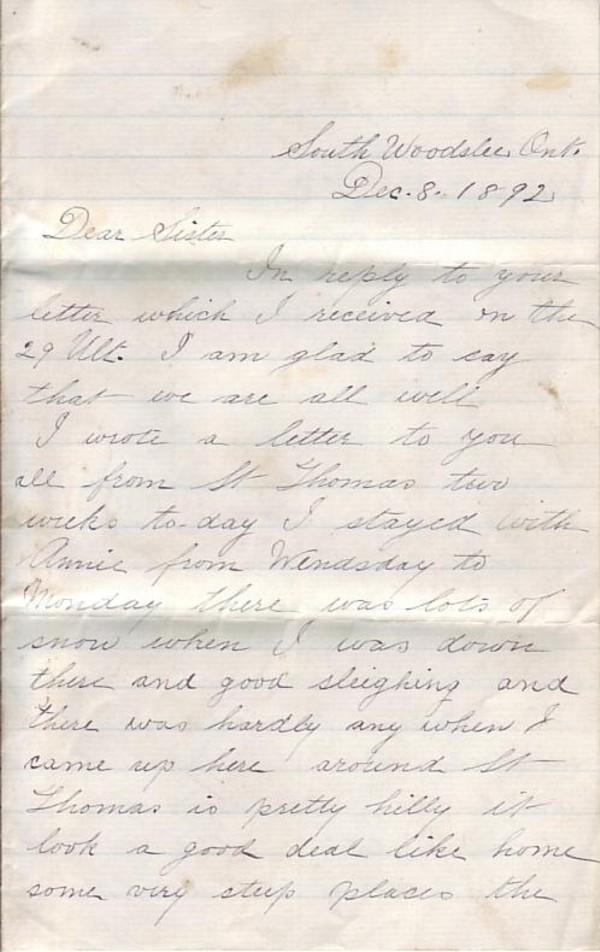 South Woodslee, Ont.
Dec. 8. 1892
Dear Sister
In reply to your
letter which I received on the
29 Ult. I am glad to say
that we are all well
I wrote a letter to you
all from St Thomas two
weeks to-day I stayed with
Annie from Wendsday to
Monday there was lots of
snow when I was down
there and good sleighing and
there was hardly any when I
came up here around St
Thomas is pretty hilly it
look a good deal like home
some very steep places the